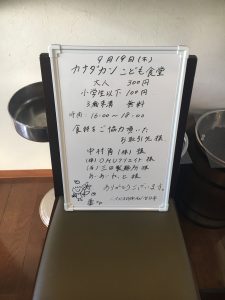 9月19日(木)
カナダカンこども食堂
大人 300円
小学生以下 100円
3歳未満 無料
時間 16:00〜18:00
食材をご協力頂いた
お取引先様
中村角(株) 様
(株)OHUクリエイト 様
(有)三田製麺所 様
あ・お・や・ど 様
ありがとうございます。